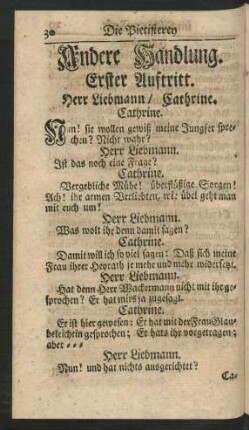 30 Die Pietisterey
Andere Handlung.
Erster Auftritt.
Herr Liebmann / Cathrine.
Cathrine.
Nun! sie wollen gewiß meine Jungfer spre-
chen? Nicht wahr?
Herr Liebmann.
Ist das noch eine Frage?
Cathrine.
Vergebliche Mühe! überflüßige Sorgen!
Ach! ihr armen Verliebten, wie übel geht man
mit euch um!
Herr Liebmann.
Was wolt ihr denn damit sagen?
Cathrine.
Damit will ich so viel sagen: Daß sich meine
Frau ihrer Heyrath je mehr und mehr widersetzt.
Herr Liebmann.
Hat denn Herr Wackermann nicht mit ihr ge-
sprochen? Er hat mirs ja zugesagt.
Cathrine.
Er ist hier gewesen: Er hat mit der Frau Glau-
beleichtin gesprochen; Er hats ihr vorgetragen;
aber - - -
Herr Liebmann.
Nun! und hat nichts ausgerichtet?
Ca-